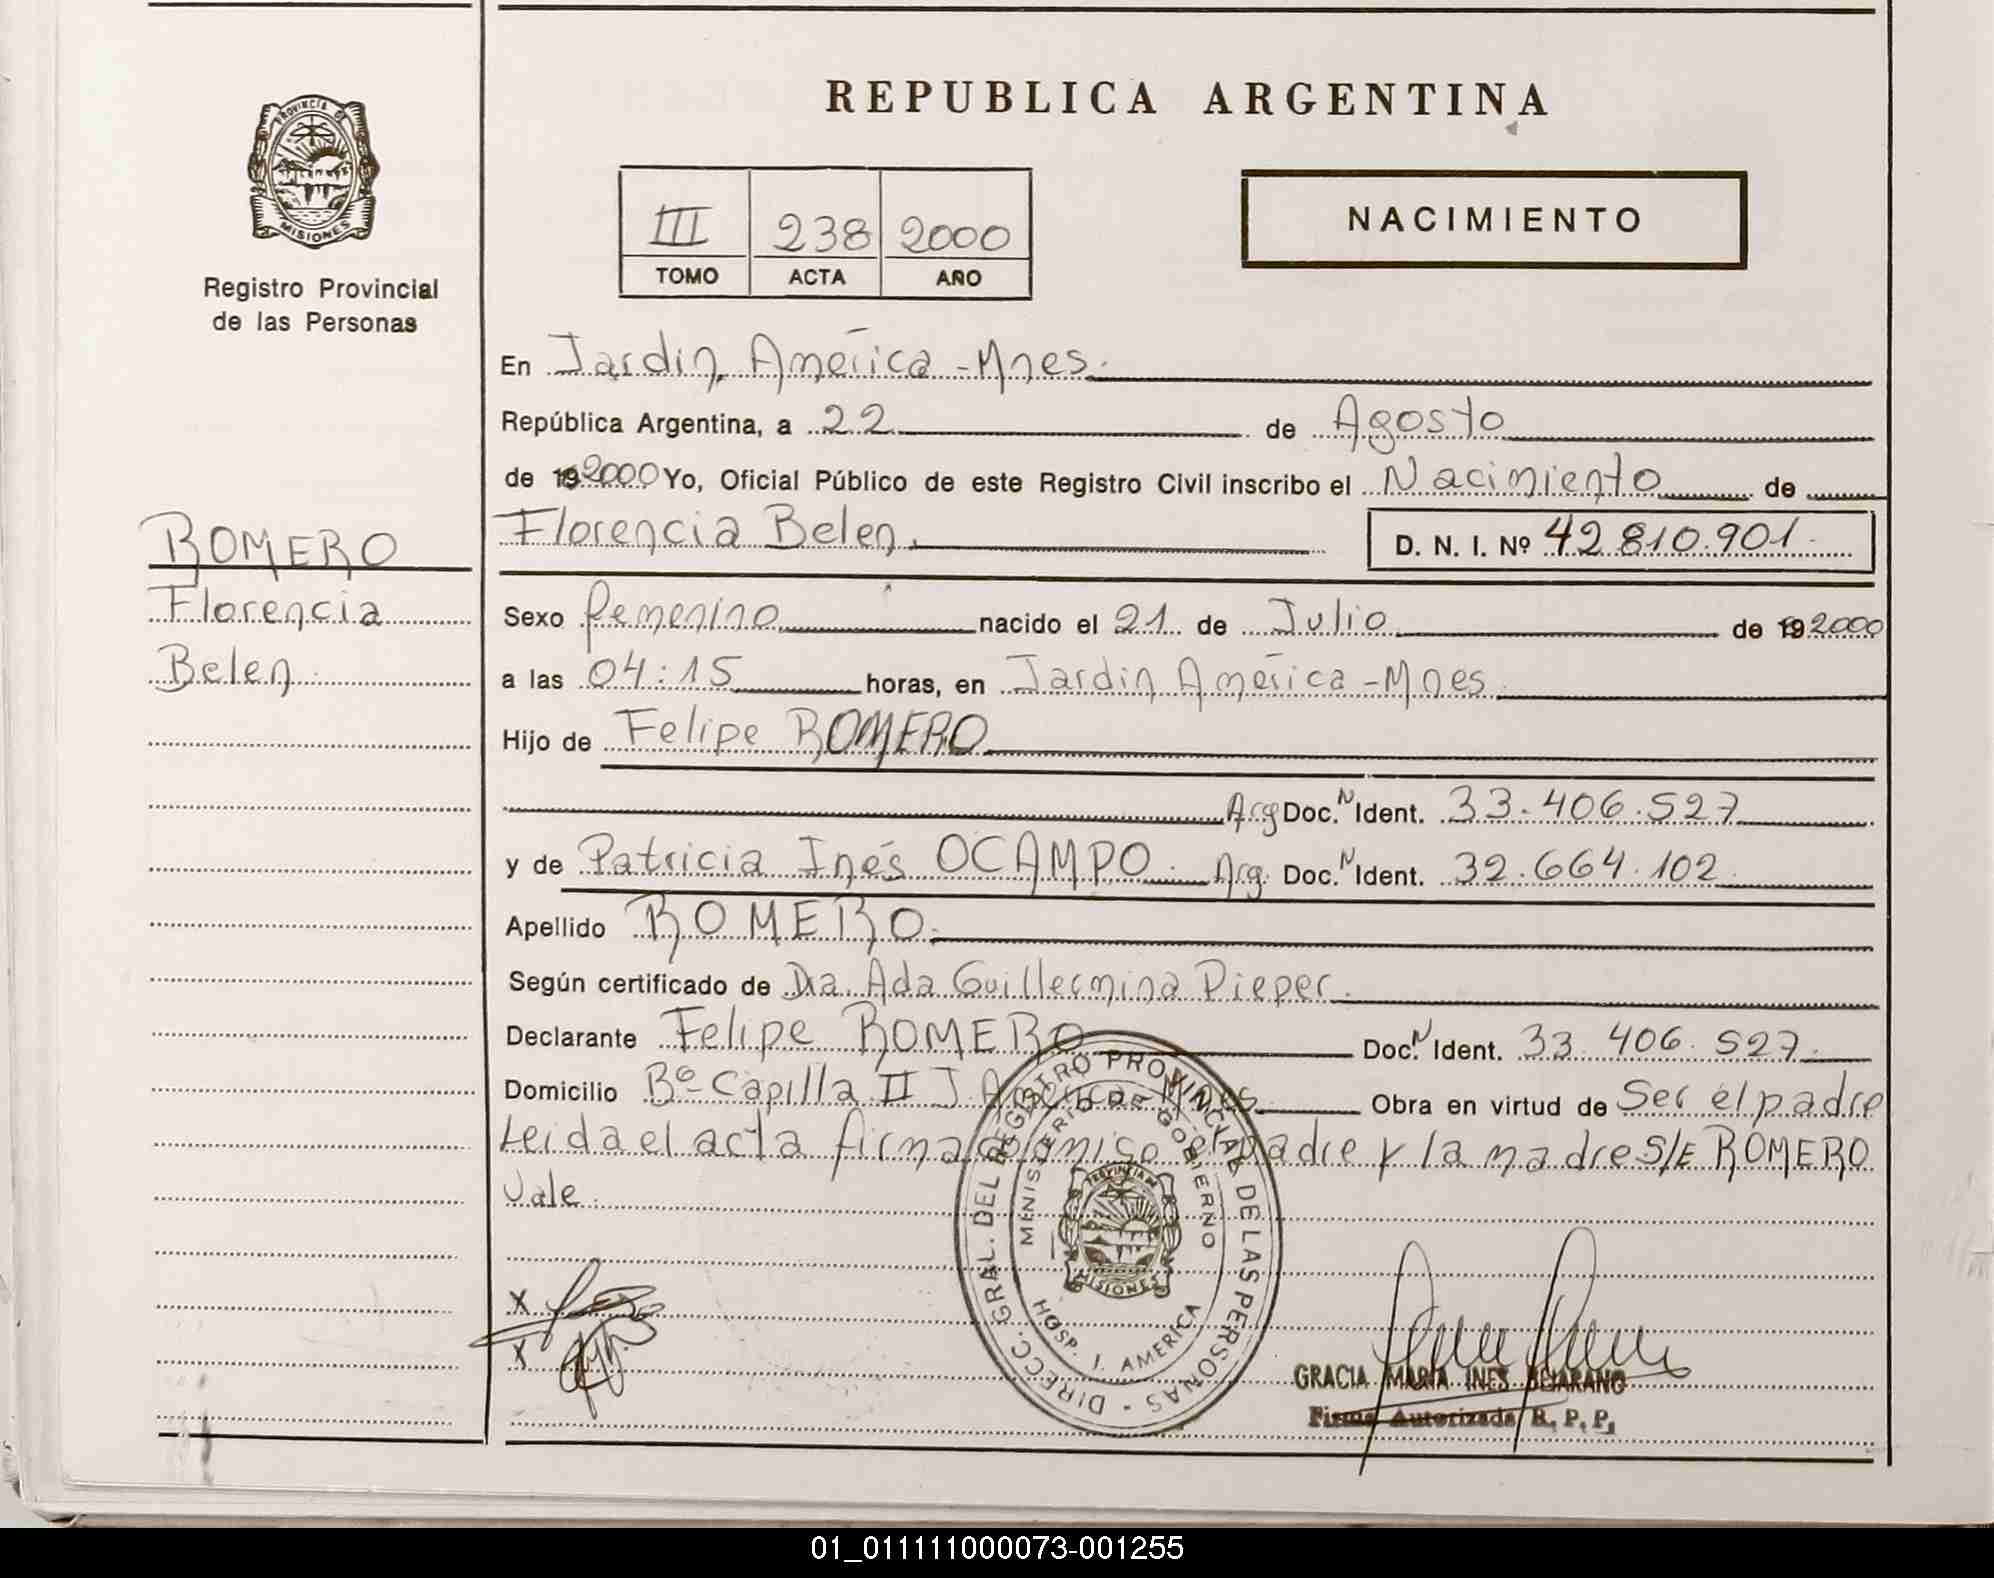 REPUBLICA ARGENTINA
PROVINCIA DE MISIONES
Registro Provincial
de las Personas
III 238 2000
TOMO ACTA AÑO
NACIMIENTO
En Jardin América - Mnes.
República Argentina, a 22 de Agosto
de 19 2000 Yo, Oficial Público de este Registro Civil inscribo el Nacimiento de
Florencia Belen. D. N. I. Nº 42 810.901.
ROMERO
Florencia
Belen.
Sexo femenino nacido el 21 de Julio de 19 2000
a las 04:15 horas, en Jardin América - Mnes
Hijo de Felipe ROMERO
Arg Doc. N Ident. 33.406.527
y de Patricia Inés OCAMPO. Arg. Doc. N Ident. 32.664.102
Apellido ROMERO.
Según certificado de Dra. Ada Guillermina Pieper.
Declarante Felipe ROMERO Doc. N Ident. 33.406.527
Domicilio Bº Capilla II J. América Mnes Obra en virtud de Ser el padre
Leida el acta firma conmigo el padre y la madre S/E ROMERO
Vale.
DIRECC. GRAL. DEL REGISTRO PROVINCIAL DE LAS PERSONAS -
MINISTERIO DE GOBIERNO
PROVINCIA DE MISIONES
HOSP. J. AMERICA
X
X
GRACIA MARIA INES BEJARANO
Firma Autorizada R. P. P.
01_011111000073-001255